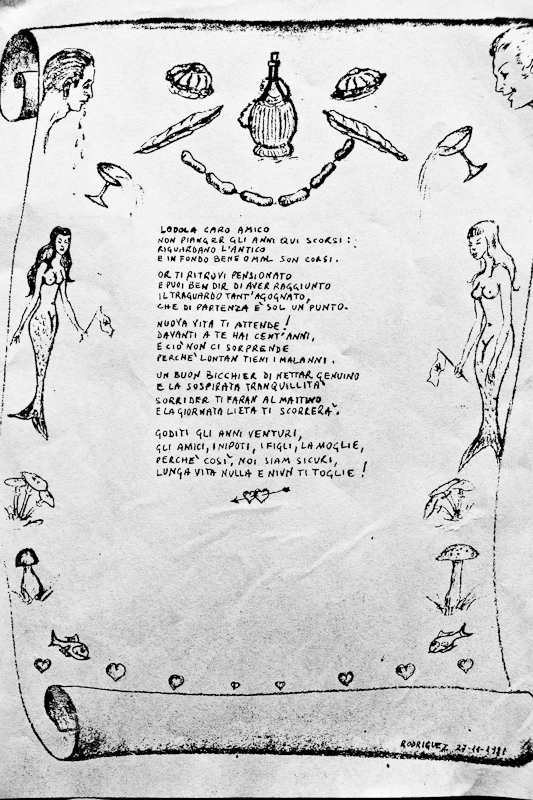 LODOLA CARO AMICO
NON PIANGER GLI ANNI QUI SCORSI:
RIGUARDANO L'ANTICO
E IN FONDO BENE O MAL SON CORSI.
OR TI RITROVI PENSIONATO
E PUOI BEN DIR DI AVER RAGGIUNTO
IL TRAGUARDO TANT'AGOGNATO,
CHE DI PARTENZA È SOL UN PUNTO.
NUOVA VITA TI ATTENDE!
DAVANTI A TE HAI CENT'ANNI,
E CIÒ NON CI SORPRENDE
PERCHE' LONTAN TIENI I MALANNI.
UN BUON BICCHIER DI NETTAR GENUINO
E LA SOSPIRATA TRANQUILLITA'
SORRIDER TI FARAN AL MATTINO
E LA GIORNATA LIETA TI SCORRERÀ.
GODITI GLI ANNI VENTURI,
GLI AMICI, I NIPOTI, I FIGLI, LA MOGLIE,
PERCHE' COSI', NOI SIAM SICURI,
LUNGA VITA NULLA E NIUN TI TOGLIE!
RODRIGUEZ 27-11-